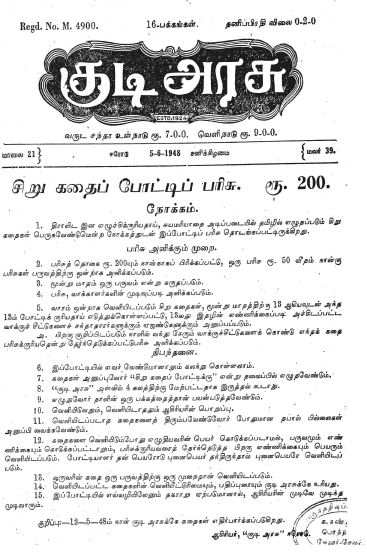 Regd. No. M. 4900. 16-பக்கங்கள். தனிப்பிரதி விலை 0-2-0
குடி அரசு
ESTD.1924
வருட சந்தா உள்நாடு ரூ. 7-0-0. வெளிநாடு ரூ. 9-0-0.
மாலை 21 ஈரோடு 5-6-1948 சனிக்கிழமை மலர் 39.
சிறு கதைப் போட்டிப் பரிசு. ரூ. 200.
நோக்கம்.
1. திராவிட இன எழுச்சிக்குரியதாய், சுயமரியாதை அடிப்படையில் தமிழில் எழுதப்படும் சிறு
கதைகள் பெருகவேண்டுமென்ற நோக்கத்துடன் இப்போட்டிப் பரிசு தொடங்கப்பட்டிருக்கிறது.
பரிசு அளிக்கும் முறை.
2. பரிசுத் தொகை ரூ. 200யும் நான்காகப் பிரிக்கப்பட்டு, ஒரு பரிசு ரூ. 50 வீதம் நான்கு
பரிசுகள் பருவத்திற்கு ஒன்றாக அளிக்கப்படும்.
3. மூன்று மாதம் ஒரு பருவம் என்று கருதப்படும்.
4. பரிசு, வாக்காளர்களின் முடிவுப்படி அளிக்கப்படும்.
5. வாரம் ஒன்றாக வெளியிடப்படும் சிறு கதைகள், மூன்று மாதத்திற்கு 13 ஆகியவுடன் அந்த
13ம் போட்டிக் குரியதாய் எடுத்துக்கொள்ளப்பட்டு, 13வது இதழின் எண்ணிக்கைப்படி அச்சிடப்பட்ட
வாக்குச் சீட்டுகளைச் சந்தாதாரர்களுக்கும் ஏஜண்டுகளுக்கும் அனுப்பப்படும்.
அ. பிறகு குறிப்பிடப்படும் நாளில் வந்து சேரும் வாக்குச்சீட்டுகளைக் கொண்டு எந்தக் கதை
பரிசுக்குரியதென்று தேர்ந்தெடுக்கப்பட்டுபரிசு அளிக்கப்படும்.
நிபந்தனை.
6. இப்போட்டியில் எவர் வேண்டுமானாலும் கலந்து கொள்ளலாம்.
7. கதைகள் அனுப்புவோர் "சிறு கதைப் போட்டிக்கு" என்று தலைப்பில் எழுதவேண்டும்.
8. "குடி அரசு" அளவில் 4 பக்கத்திற்கு மேற்பட்டதாக இருத்தல் கூடாது.
9. எழுதுவோர் தாளின் ஒரு பக்கத்தைத்தான் பயன்படுத்தவேண்டும்.
10. வெளியிடுவதும், வெளியிடாததும் ஆசிரியரின் பொறுப்பு.
11. வெளியிடப்படாத கதைகளைத் திரும்பவேண்டுவோர் போதுமான தபால் பில்லைகள்
அனுப்பி வைக்கவேண்டும்.
12. கதைகளை வெளியிடும்போது எழுதியவரின் பெயர் கொடுக்கப்படாமல், பருவமும் எண்
ணிக்கையும் கொடுக்கப்பட்டாலும், பரிசுக்குரியவரைத் தேர்ந்தெடுத்த பிறகு எண்ணிக்கையும் பெயரும்
வெளியிடப்படும். போட்டியாளர் தன் பெயரோடு புனைபெயர் தந்திருந்தால் புனைபெயரே வெளியிடப்
படும்.
13. ஒருவரின் கதை ஒரு பருவத்திற்கு ஒரு முறைதான் வெளியிடப்படும்.
14. வெளியிடப்பட்ட கதைகளின் வெளியீட்டுரிமையும், பதிப்புரிமையும் குடி அரசுக்கே உரியது.
15. இப்போட்டியில் எவ்வழியிலேனும் தகராறு ஏற்படுமானால், ஆசிரியரின் முடிவே முடிந்த
முடிவாகும்.
குறிப்பு:—12—5—48ம் நாள் குடி அரசுக்கே கதைகள் எதிர்பார்க்கப்படுகிறது.
ஆசிரியர், "குடி அரசு" ஈரோடு.